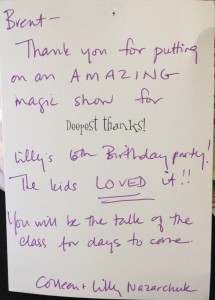 Brent-
Thank you for putting
on an AMAZING
magic show for
Deepest thanks!
Lilly's 6th Birthday party!
The kids LOVED it!!
You will be the talk of the
class for days to come
Colleen + Lilly Nazarchuk